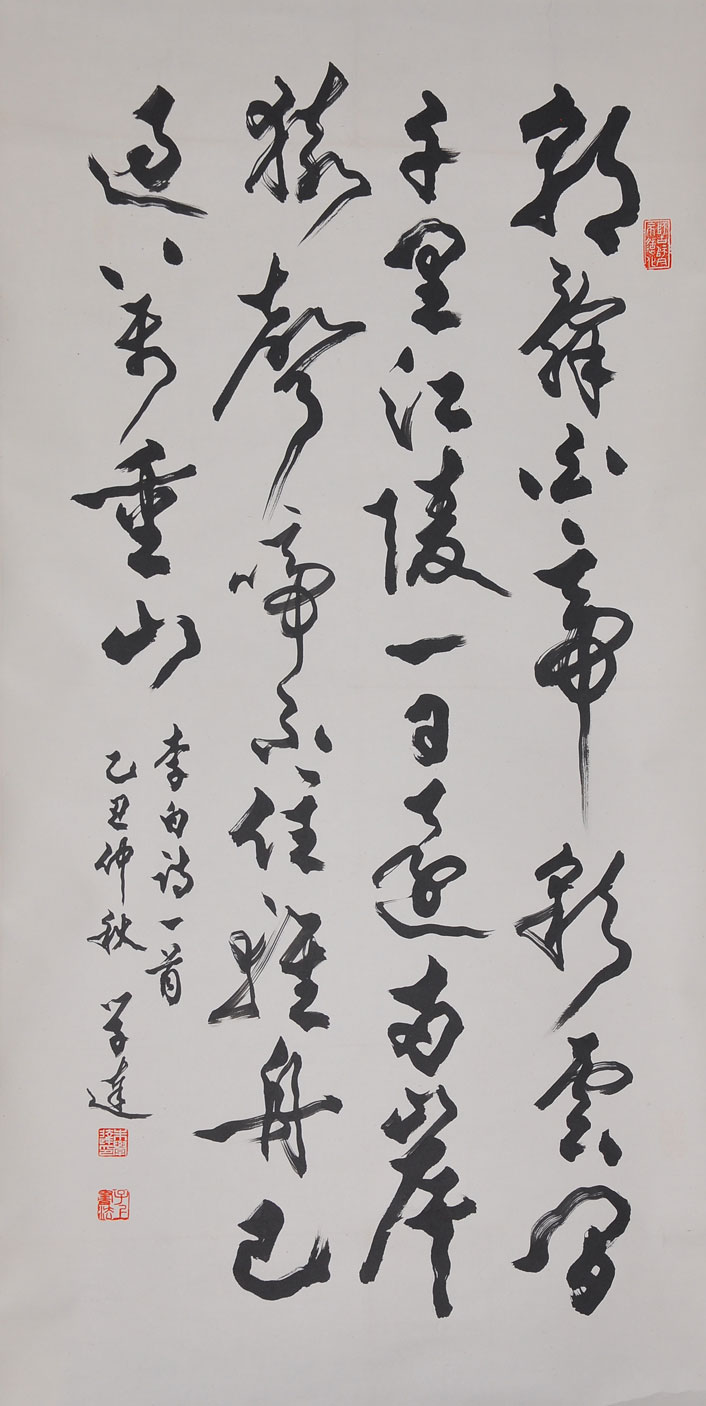 朝辭白帝彩雲間
千里江陵一日還兩岸
猿聲啼不住輕舟已
過萬重山
李白詩一首
乙丑仲秋 學達
子上書法